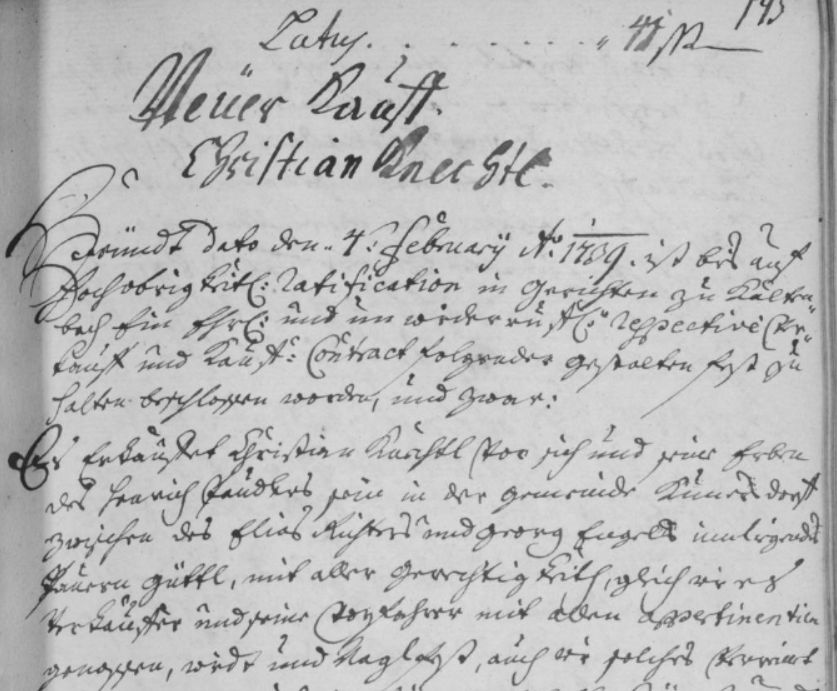 193
Latus . . . . . . . 41 ß
Neüer Kauff.
Christian Knechtl.
Gründt dato den 4. February Ao. 1739. ist bis auf
Hochobrigkeitl: Ratification in Gerichten zu Kalten-
bach Ein Ehrl: und unwiederrufl: respective Ver-
kauff und Kauff: Contract folgender gestalten fest zu
halten beschlossen worden, und zwar:
Es Erkauffet Christian Knechtl vor sich und seine Erben
des Henrich sein in der gemeinde Kunersdorff
zwischen des Elias Richters und Georg Engels innligendes
Pauern güttl, mit aller gerechtigkeith, gleich wie es
Verkäuffer und seine Vorfahrer mit allen appertinentien
genossen, wiedt und Naglfest, auch wie solches